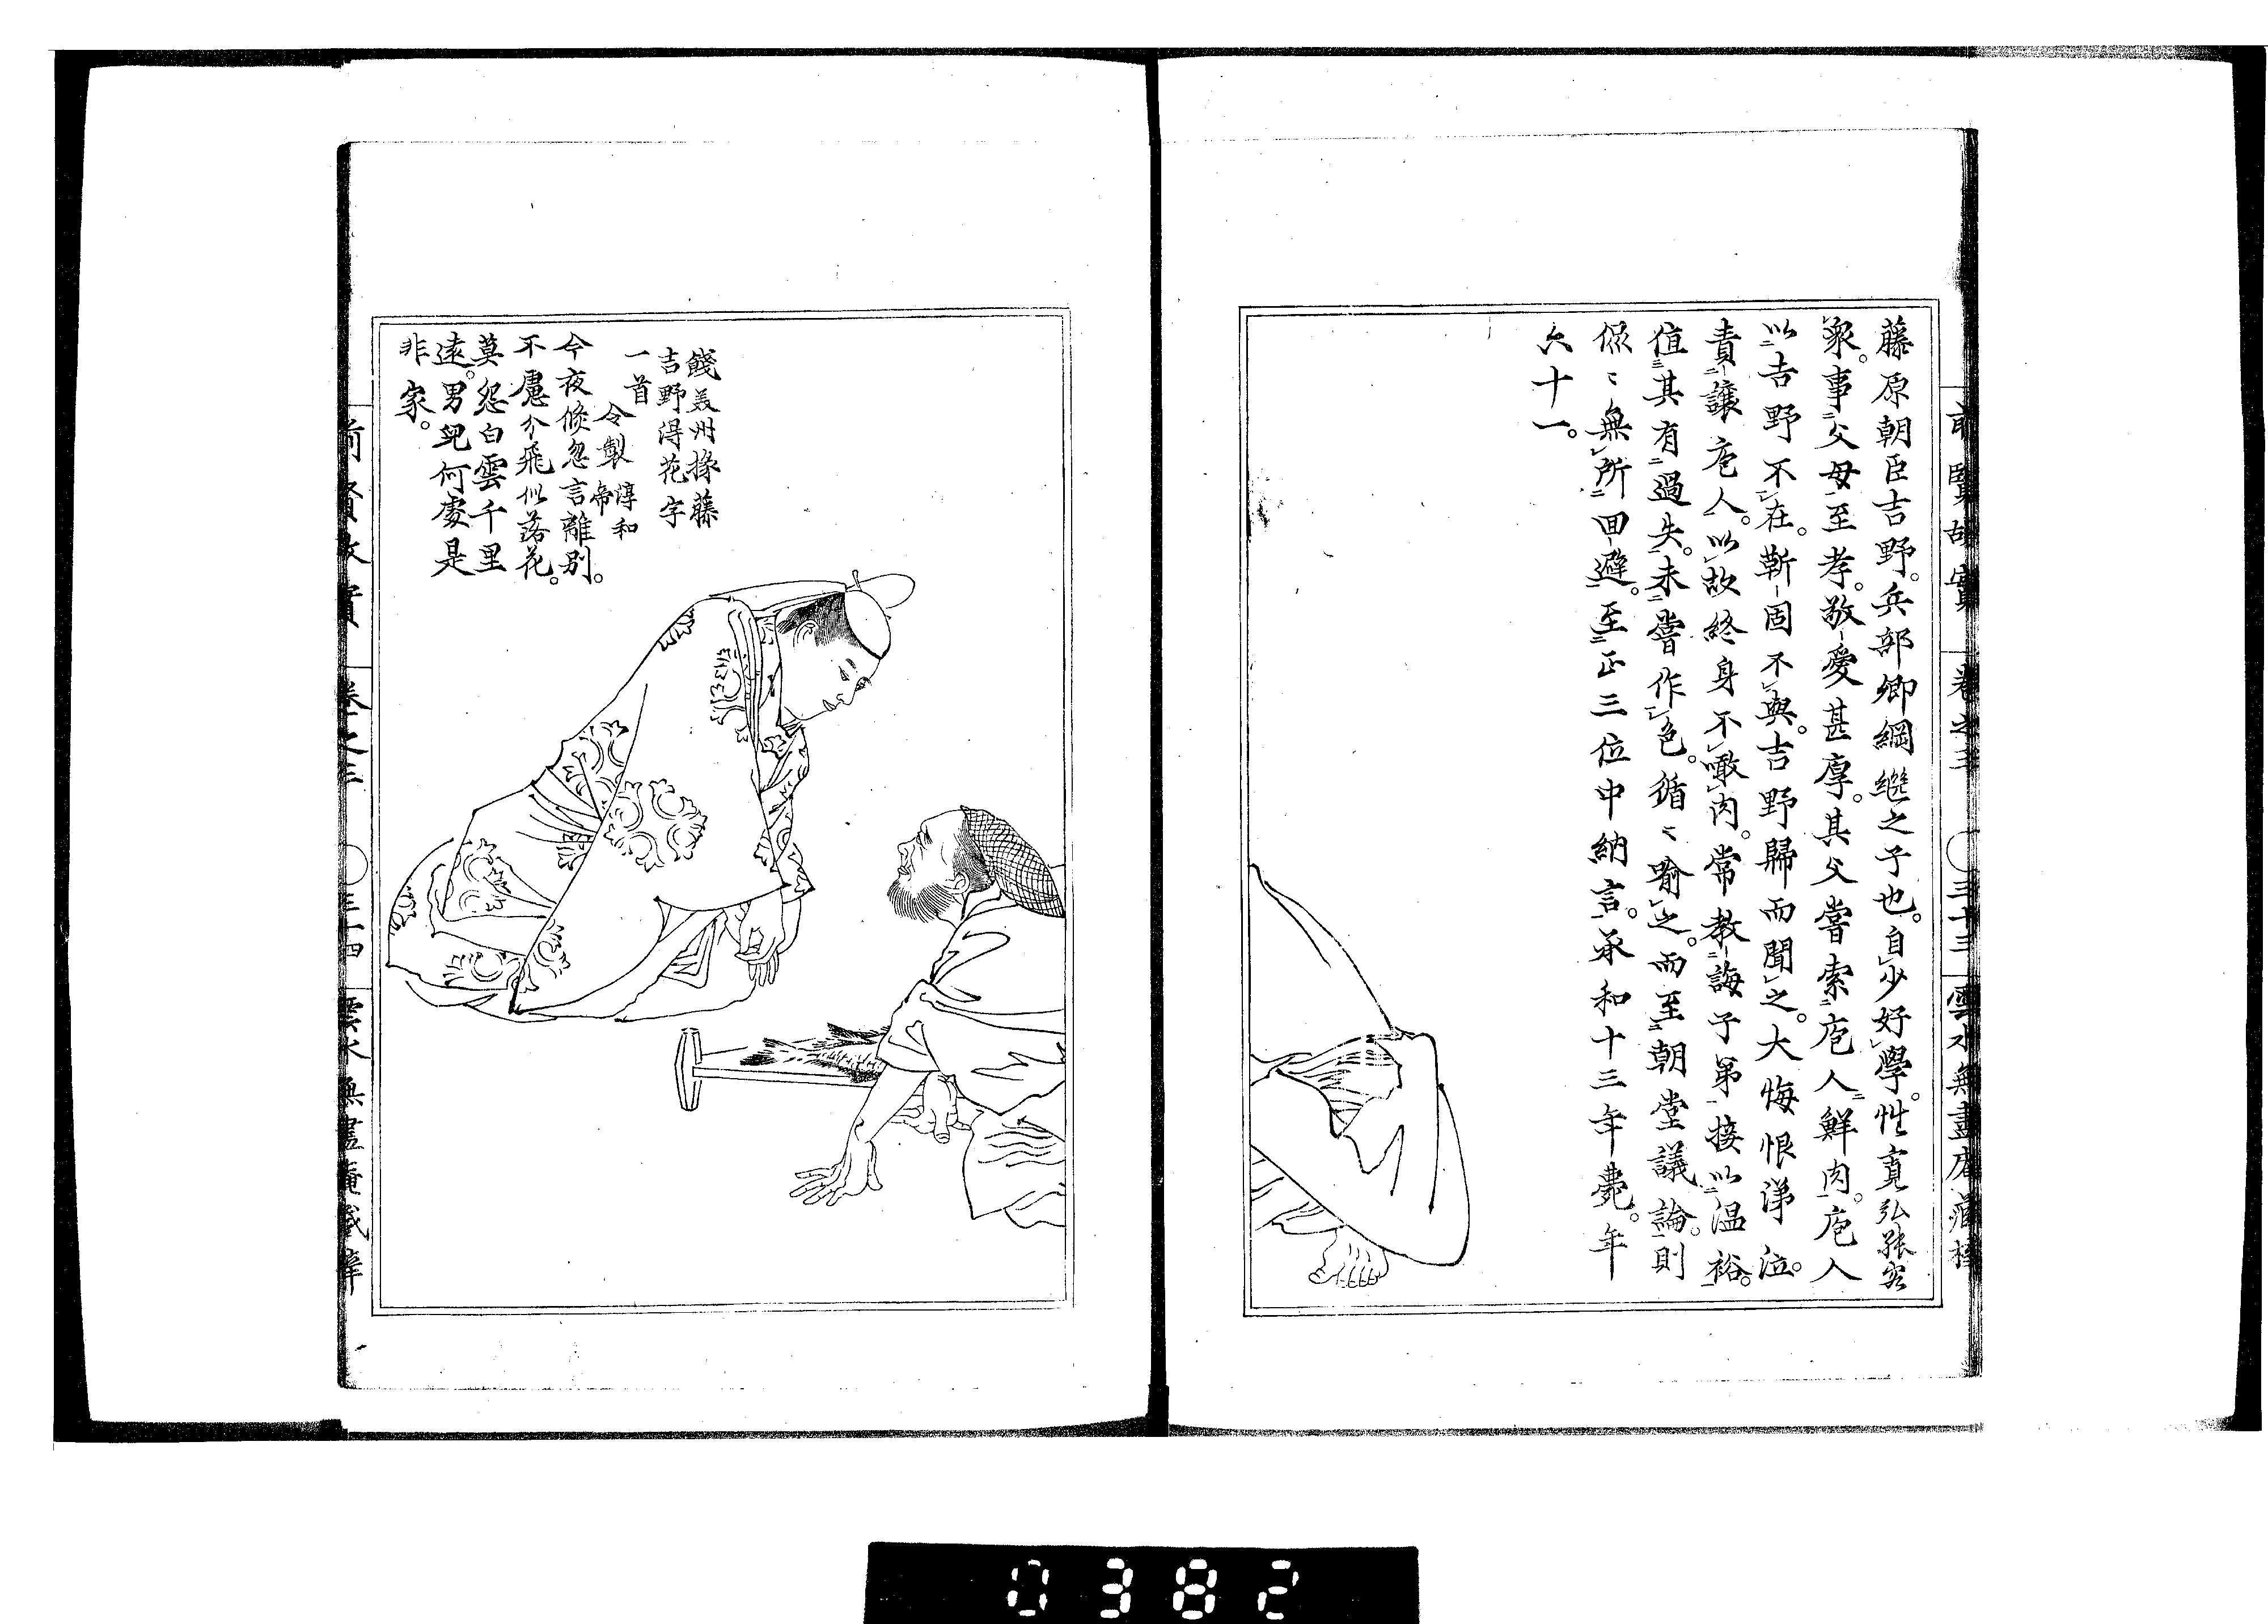 藤原朝臣吉野。兵部卿綱継之子也。自少好學。性寛弘軫容
衆。事父母至孝。敬愛甚厚。其父嘗索庖人鮮肉。庖人
以吉野不在。靳固不與。吉野歸而聞之。大悔恨涕泣。
責讓庖人。以故終身不噉肉。常教誨子第接以温裕。
值其有過失。未嘗作色。循〻喻之。而至朝堂議論。則
侃〻無所回避。至正三位中納言。承和十三年薨。年
六十一。
前賢故實 卷之三 三十三 雲水無盡庵藏梓
餞美州掾藤
吉野得花字
一首
令製 淳和帝
今夜倐忽言離別。
不慮分飛似落花。
莫怨白雲千里
遠。男兒何處是
非家。
前賢故實 卷之三 三十四 雲水無盡庵藏梓
0382